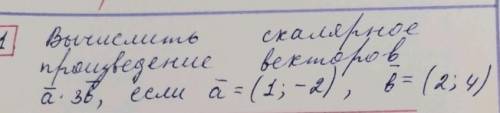 1 Вычислить скалярное
произведение векторов
a̅ · 3b̅, если a̅ = (1; -2), b̅ = (2; 4)